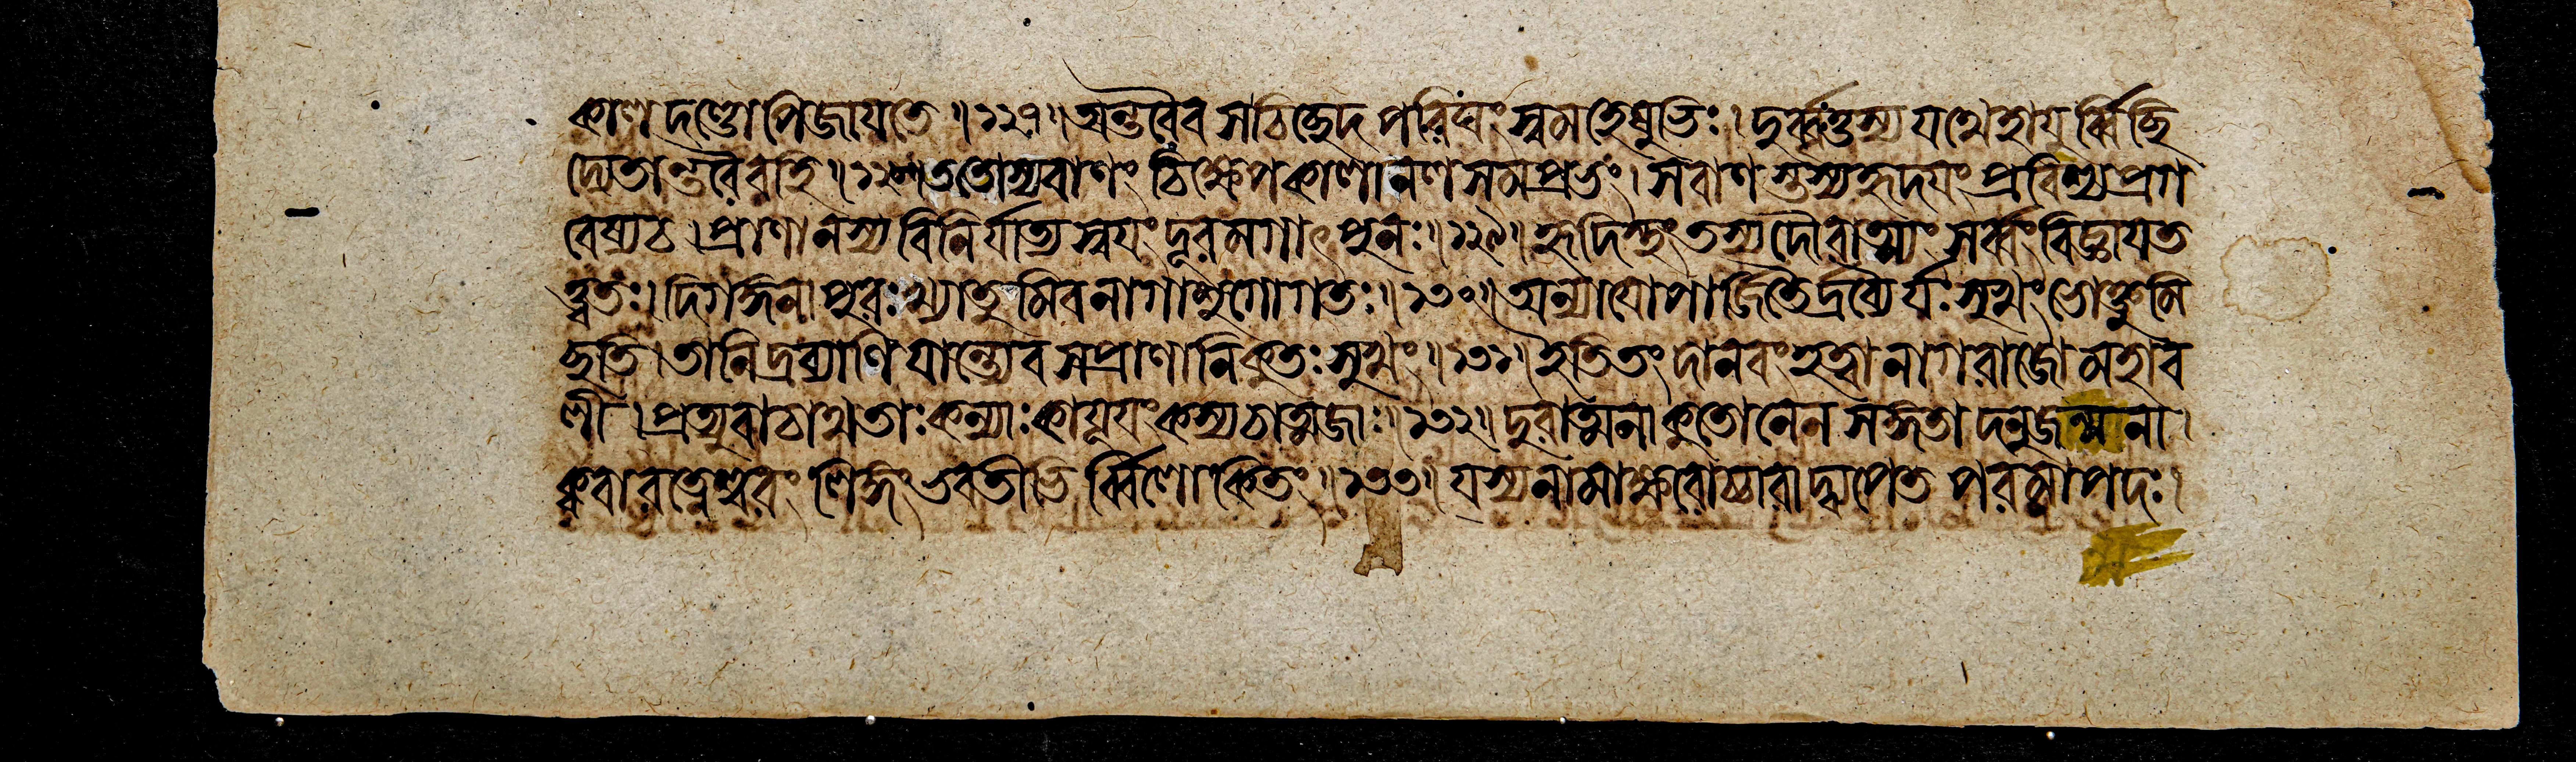 কালদণ্ডোপিজায়তে ॥ ১২৭ ॥ অন্তরৈব সচিচ্ছেদ পরিঘং স্বমহেষুভিঃ । দুর্ব্বৃত্তস্য যথেহায়ুর্ব্বিচ্ছি
দ্যেতান্তরৈরহি ॥ ১২৮ ॥ ততোস্যবাণং চিক্ষেপকালানলসমপ্রভং । সবাণ স্তস্যহৃদয়ং প্রবিশ্যপ্রগ
বেষ্যচ । প্রাণানস্য বিনির্যাত্য স্বয়ং দূরমগাৎ পুনঃ ॥ ১২৯ ॥ হৃদিস্থং তস্যদৌরাত্ম্যং সর্ব্বং বিজ্ঞায়ত
ত্ত্বতঃ । দিগঙ্গনা পুরঃ খ্যাতুমিবনাগাশুগোগতঃ ॥ ১৩০ ॥ অন্যায়োপার্জিতৈর্দ্রব্যৈর্যঃ সুখং ভোক্তুমি
চ্ছতি । তানিদ্রব্যাণি যান্ত্যেব সপ্রাণানিকুতঃ সুখং ॥ ১৩১ ॥ ইতিতং দানবং হত্বা নাগরাজো মহাব
লী । প্রত্যুবাচাথ তাঃ কন্যাঃ কাযূয়ং কস্যচাত্মজাঃ ॥ ১৩২ ॥ দুরাত্মনা কুতোনেন সঙ্গতা দনুজন্মনা ।
ক্ববারত্নেশ্বরং লিঙ্গং ভবতীভি র্ব্বিলোকিতং ॥ ১৩৩ ॥ যস্যনামাক্ষরোচ্চারাদ্ব্যপেত পরমাপদঃ ।